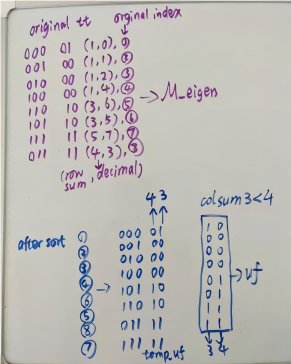 original tt orginal index
000 01 (1,0), ①
001 00 (1,1), ②
010 00 (1,2), ③
100 00 (1,4), ④
110 10 (3,6), ⑤
101 10 (3,5), ⑥
111 11 (5,7), ⑦
011 11 (4,3), ⑧
→ M_eigen
(row sum, decimal)
4 3
colsum3<4
after sort
① 000 01
② 001 00
③ 010 00
④ → 100 00
⑥ 101 10
⑤ 110 10
⑧ 011 11
⑦ 111 11
temp_vf
1 0
0 0
0 0
0 0
0 1
0 1
1 1
1 1
→ vf
3 4